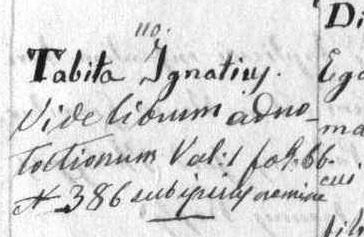 110.
Tabita Ignatius.
Vide librum adno-
tationum Vol: 1 pag. 66.
N 386 sub ipsius nomine
Di
Ega
ma
cui